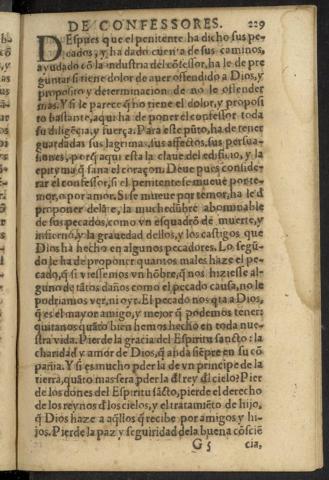 DE CONFESSORES. 229
DEspues que el penitente ha dicho sus pe-
cados, y ha dado cuenta de sus caminos,
ayudado cõ la industria dl cõfessor, ha le de pre
guntar si tiene dolor de auer ofendido a Dios, y
proposito y determinacion de no le ofender
mas. Y si le parece q̃ no tiene el dolor, y proposi
to bastante, aqui ha de poner el confessor toda
su diligẽcia, y fuerça. Para este pũto, ha de tener
guardadas sus lagrimas, sus affectos, sus persua-
siones, porq̃ aqui esta la claue del edificio, y la
epityma q̃ sana el coraçon. Deue pues conside-
rar el confessor, si el penitente se mueue por te-
mor, o por amor. Si se mueue por temor, ha le d̃
proponer delãte, la muchedũbre abominable
de sus pecados, como vn esquadrõ de muerte, y
infierno, y la grauedad dellos, y los castigos que
Dios ha hecho en algunos pecadores. Lo segũ-
do le ha de proponer quantos males haze el pe-
cado, q̃ si viessemos vn hõbre, q̃ nos hiziesse al-
guno de tãtos daños como el pecado causa, no le
podriamos ver, ni oyr. El pecado nos q̃ta a Dios,
q̃ es el mayor amigo, y mejor q̃ podemos tener:
quitanos quãto bien hemos hecho en toda nue-
stra vida. Pierde la gracia del Espiritu sancto: la
charidad y amor de Dios, q̃ anda siẽpre en su cõ-
pañia. Y si es mucho pder la de vn principe de la
tierra, quãto mas sera pder la dl rey dl cielo? Pier
de los dones del Espiritu sãcto, pierde el derecho
de los reynos dlos cielos, y el tratamiẽto de hijo,
q̃ Dios haze a aq̃llos q̃ recibe por amigos y hi-
jos. Pierde la paz y seguridad dela buena cõscie
G 5 cia,